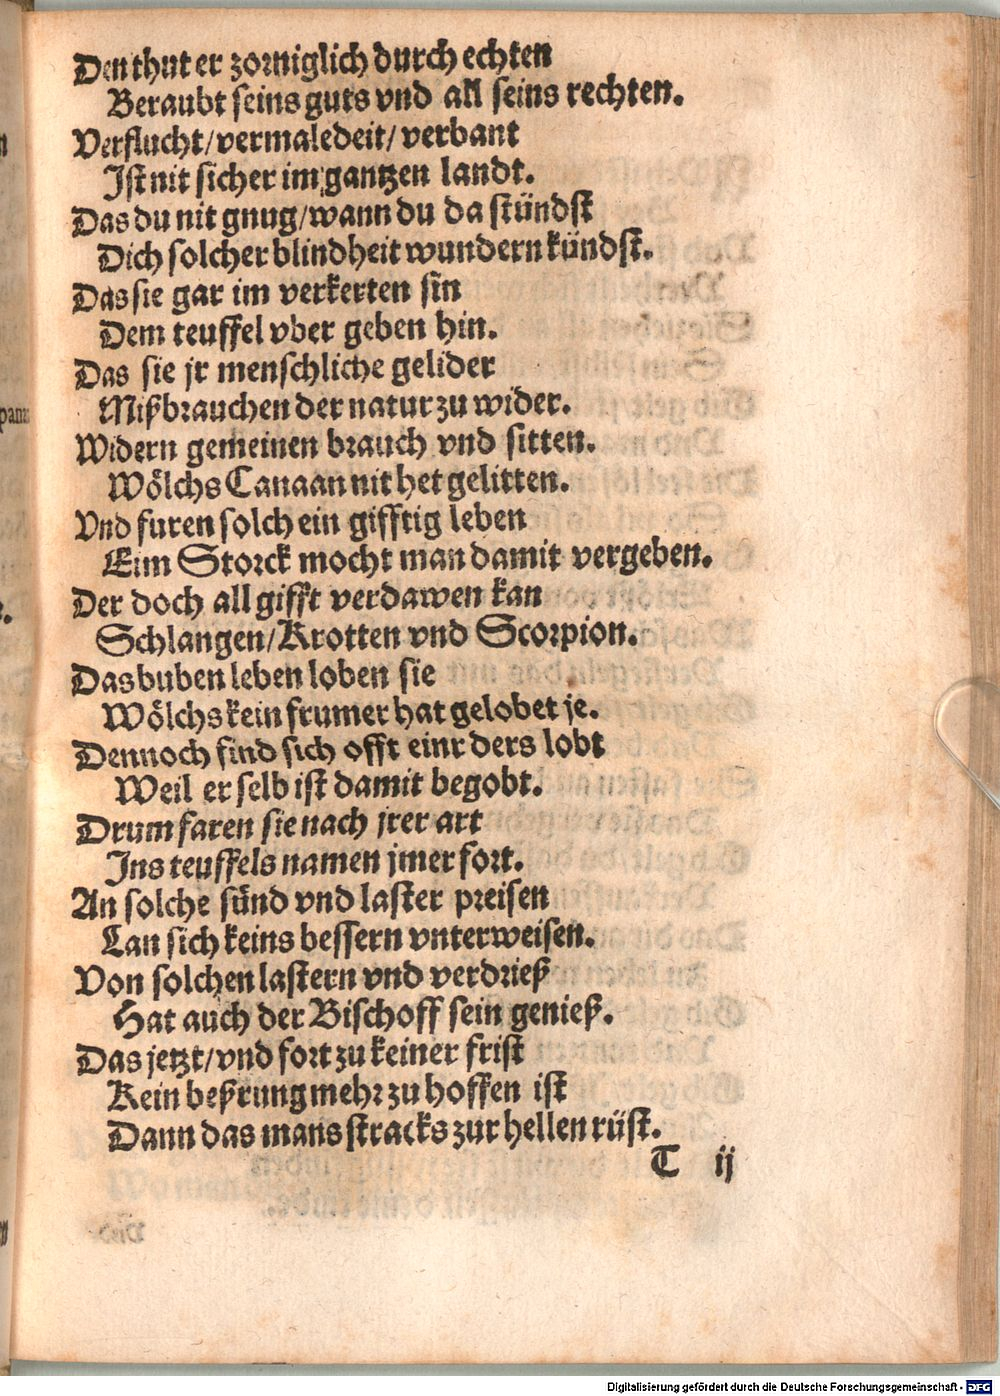 Den thut er zorniglich durch echten
Beraubt seins guts vnd all seins rechten.
Verflucht/vermaledeit/verbant
Ist nit sicher im gantzen landt.
Das du nit gnug/wann du da stündst
Dich solcher blindheit wundern kündst.
Das sie gar im verkerten sin
Dem teuffel vber geben hin.
Das sie jr menschliche gelider
Mißbrauchen der natur zu wider.
Widern gemeinen brauch vnd sitten.
Wölchs Canaan nit het gelitten.
Vnd furen solch ein gifftig leben
Eim Storck mocht man damit vergeben.
Der doch all gifft verdawen kan
Schlangen/Krotten vnd Scorpion.
Das buben leben loben sie
Wölchs kein frumer hat gelobet je.
Dennoch find sich offt einr ders lobt
Weil er selb ist damit begobt.
Drum faren sie nach jrer art
Ins teuffels namen jmer fort.
An solche sünd vnd laster preisen
Lan sich keins bessern vnterweisen.
Von solchen lastern vnd verdrieß
Hat auch der Bischoff sein genieß.
Das jetzt/vnd fort zu keiner frist
Kein beßrung mehr zu hoffen ist
Dann das mans stracks zur hellen rüst.
T ij
Digitalisierung gefördert durch die Deutsche Forschungsgemeinschaft - DFG